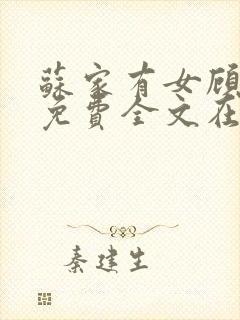 蘇家有女顾
免費全文在
秦建生